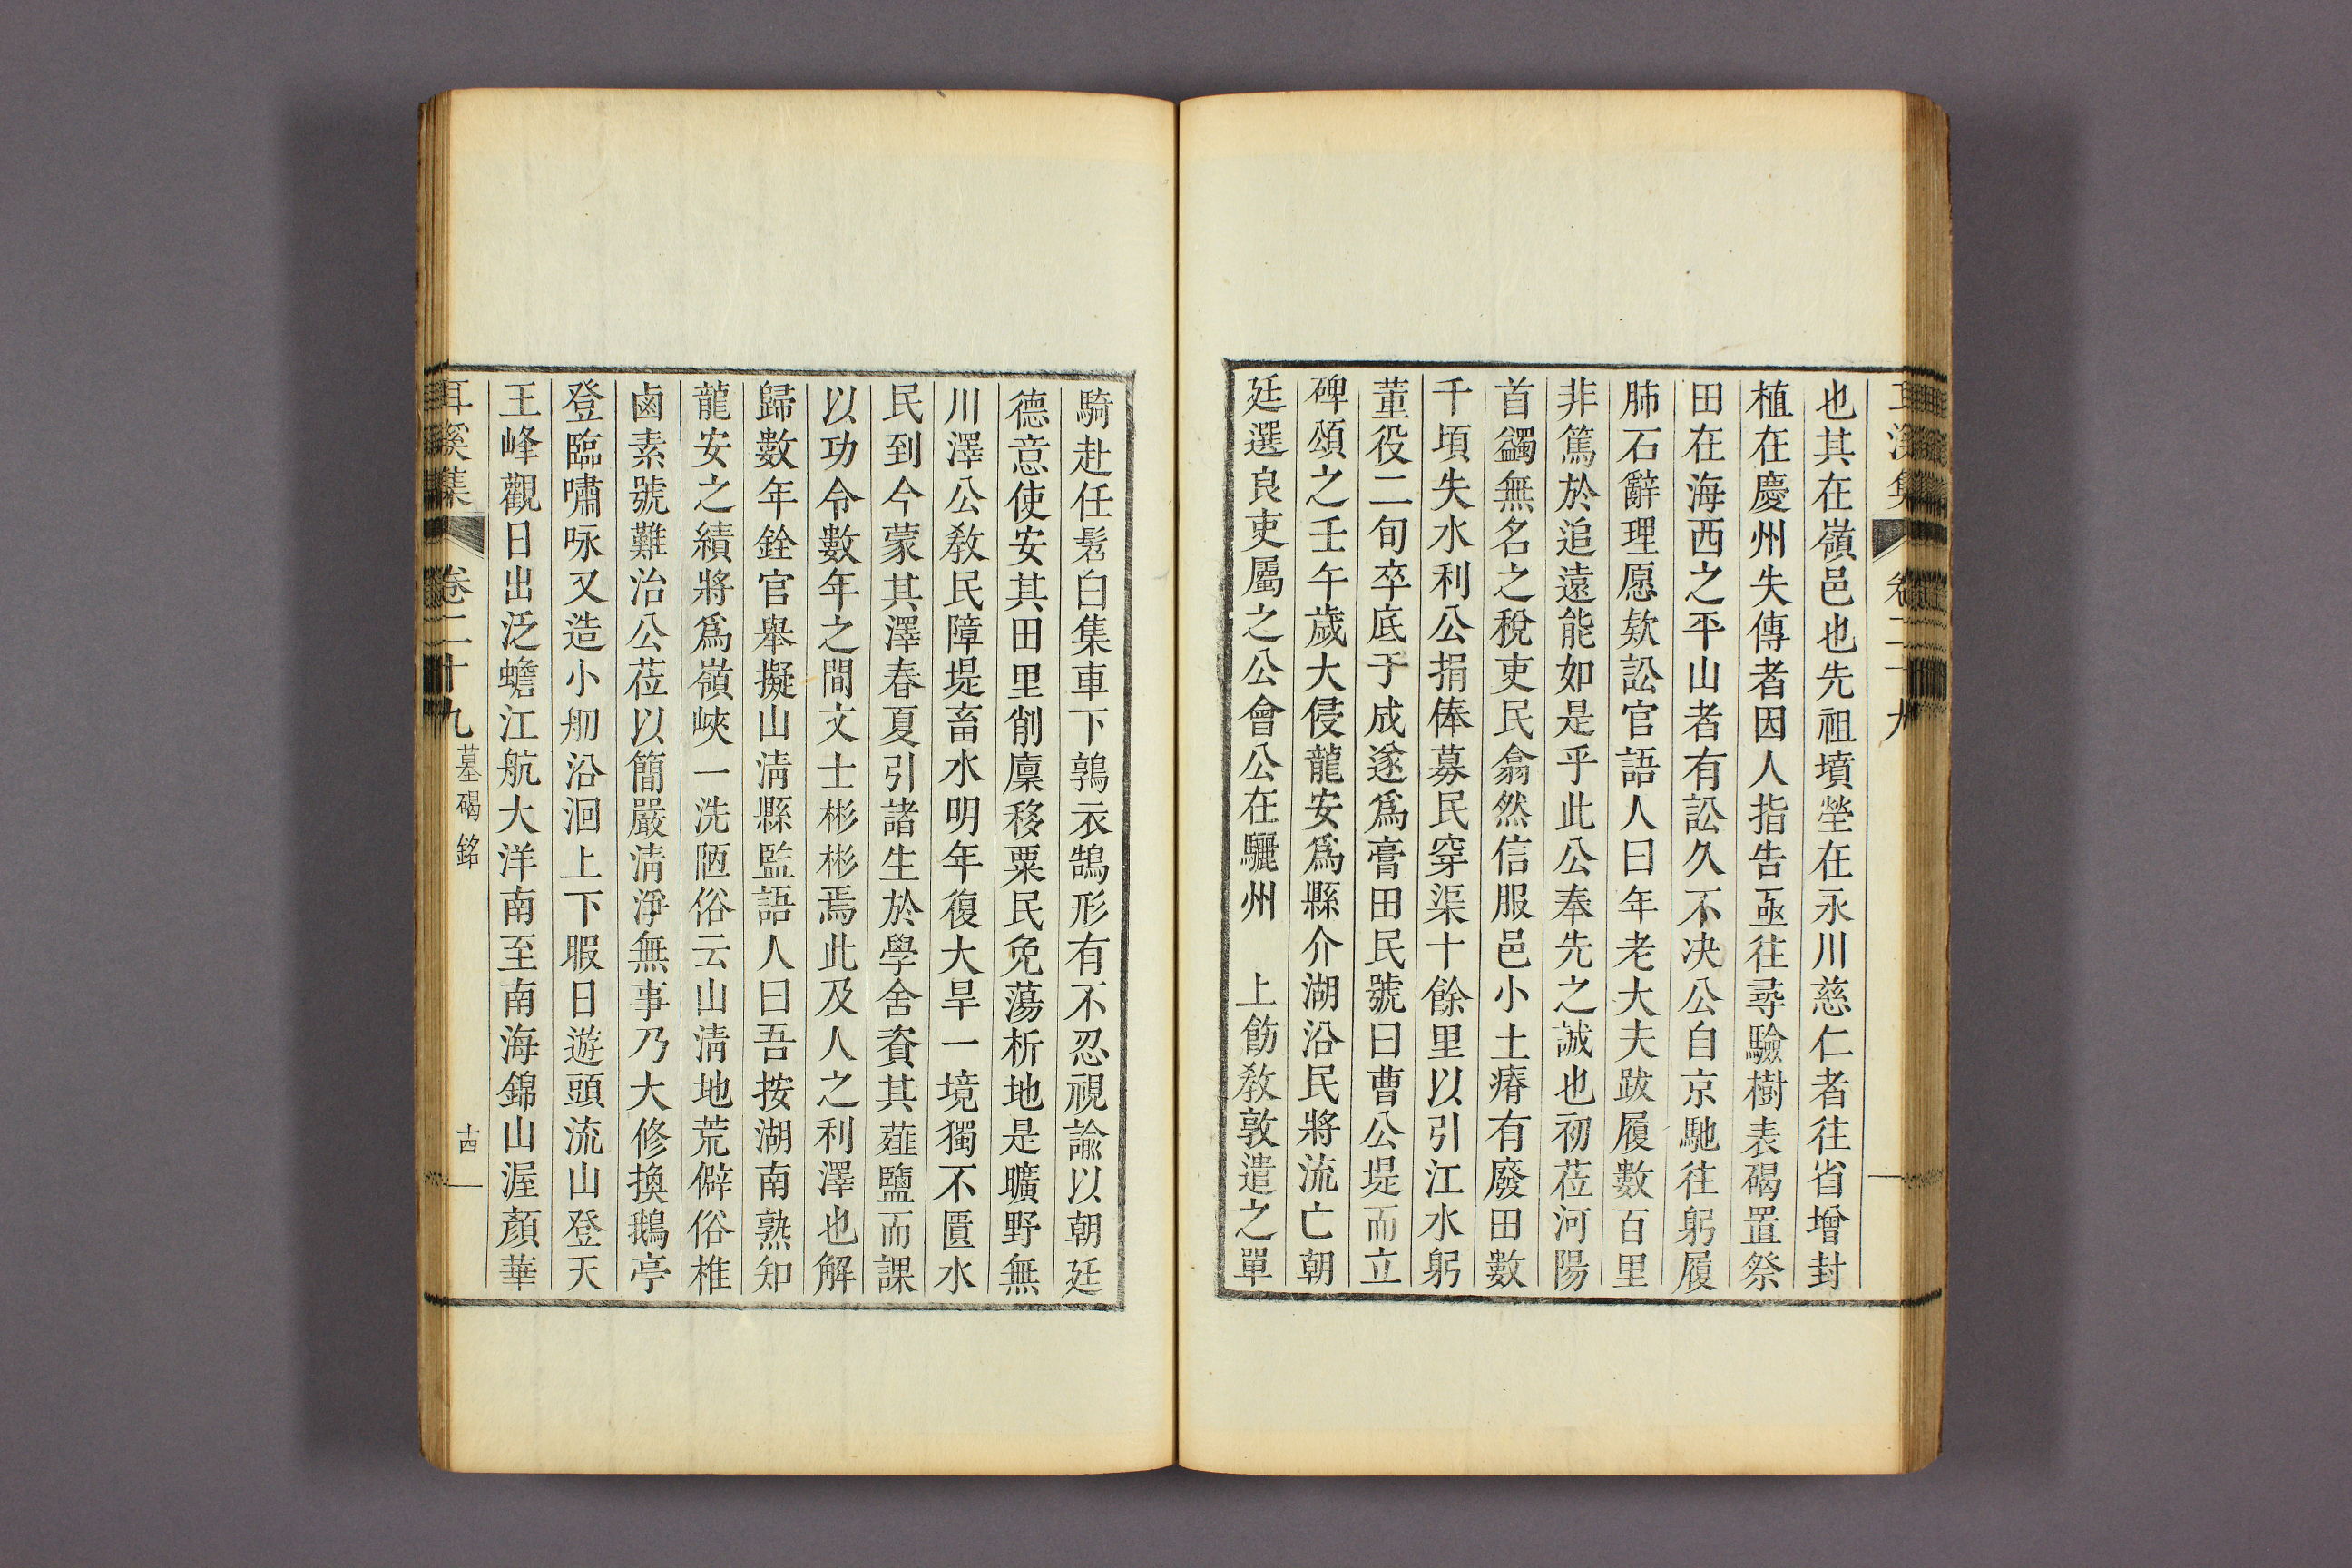 也其在嶺邑也先祖墳塋在永川慈仁者往省增封
植在慶州失傳者因人指告亟往尋驗樹表碣置祭
田在海西之平山者有訟久不决公自京馳往躬履
肺石辭理愿欵訟官語人曰年老大夫跋履數百里
非篤於追遠能如是乎此公奉先之誠也初莅河陽
首蠲無名之稅吏民翕然信服邑小土瘠有廢田數
千頃失水利公捐俸募民穿渠十餘里以引江水躬
董役二旬卒底于成遂爲膏田民號曰曹公堤而立
碑頌之壬午歲大侵龍安爲縣介湖沿民將流亡朝
廷選良吏屬之公會公在驪州 上飭敎敦遣之單
騎赴任髫白集車下鶉衣鵠形有不忍視諭以朝廷
德意使安其田里削廩移粟民免蕩析地是曠野無
川澤公敎民障堤畜水明年復大旱一境獨不匱水
民到今蒙其澤春夏引諸生於學舍資其薤鹽而課
以功令數年之間文士彬彬焉此及人之利澤也解
歸數年銓官舉擬山淸縣監語人曰吾按湖南熟知
龍安之績將爲嶺峽一洗陋俗云山淸地荒僻俗椎
鹵素號難治公莅以簡嚴淸淨無事乃大修換鵝亭
登臨嘯咏又造小舠沿洄上下暇日遊頭流山登天
王峰觀日出泛蟾江航大洋南至南海錦山渥顏華
耳溪集 卷二十九 墓碣銘 十四